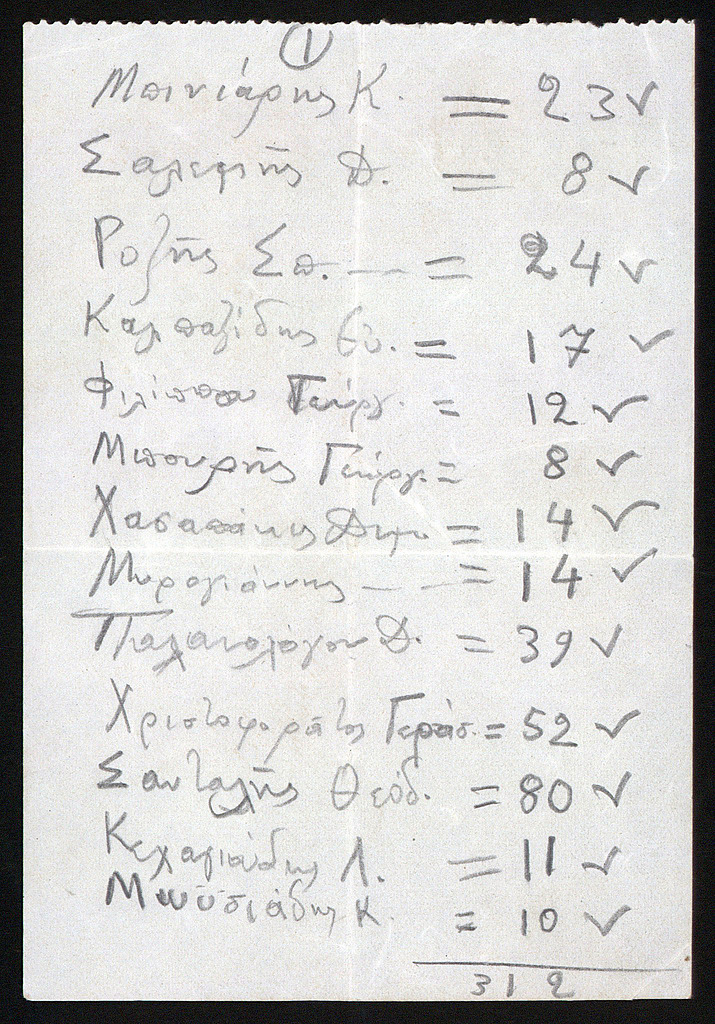 1
Μπινιάρης Κ. = 23 ✓
Σαλεφής Δ. = 8 ✓
Ροζής Σπ. — = 24 ✓
Καλπαζίδης Ευ. = 17 ✓
Φιλίππου Γεώργ. = 12 ✓
Μπουρής Γεώργ. = 8 ✓
Χασαπάκης Δημ = 14 ✓
Μυρογιάννης — - = 14 ✓
Παλαιολόγου Δ. = 39 ✓
Χριστοφοράτος Γεράσ. = 52 ✓
Σανταλής Θεόδ. = 80 ✓
Κεχαγιάδης Λ. = 11 ✓
Μωϋσιάδης Κ. = 10 ✓
312